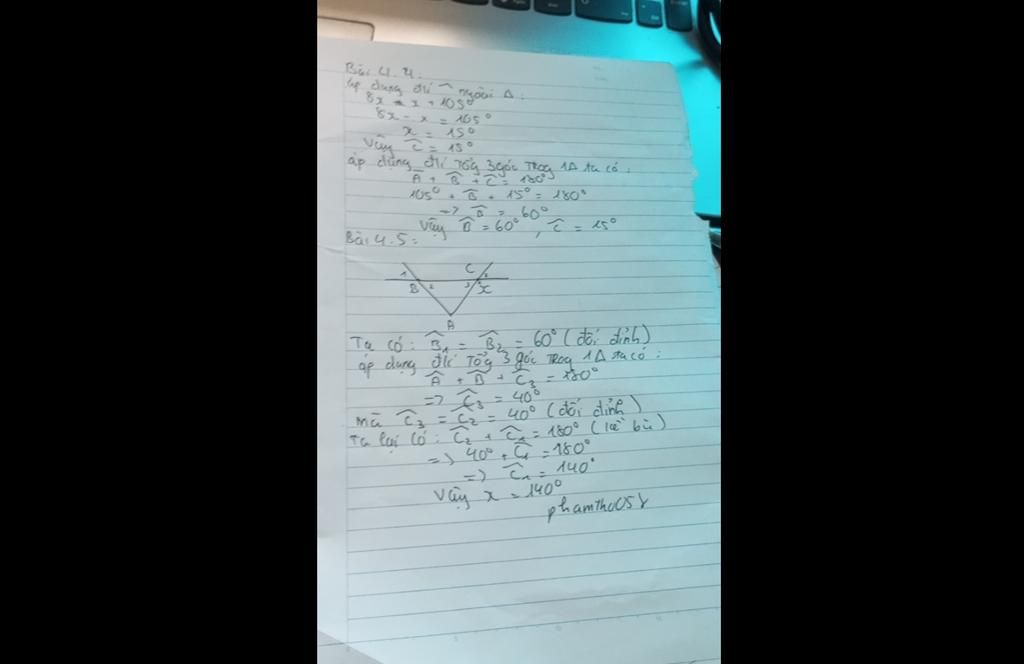 Bài 4.4:
áp dụng đlí ⌒ ngoài Δ:
8x = x + 105°
8x - x = 105°
x = 15°
Vậy Ĉ = 15°
áp dụng đlí Tổg 3 góc Trog 1Δ ta có:
Â + B̂ + Ĉ = 180°
105° + B̂ + 15° = 180°
=> B̂ = 60°
Vậy B̂ = 60°, Ĉ = 15°
Bài 4.5:
1 C 2
B 2 3 x
A
Ta có: B̂₁ = B̂₂ = 60° (đối đỉnh)
áp dụng đlí Tổg 3 góc Trog 1Δ ta có:
Â + B̂ + Ĉ₃ = 180°
=> Ĉ₃ = 40°
mà Ĉ₃ = Ĉ₂ = 40° (đối đỉnh)
Ta lại có: Ĉ₂ + Ĉ₁ = 180° (kề bù)
=> 40° + Ĉ₁ = 180°
=> Ĉ₁ = 140°
Vậy x = 140°